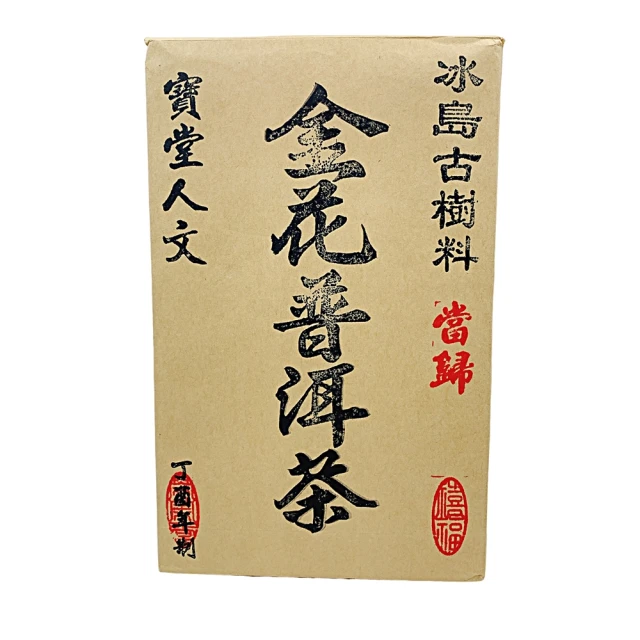 冰島古樹料
當歸
禧福
金花普洱茶
寶堂人文
丁酉年制